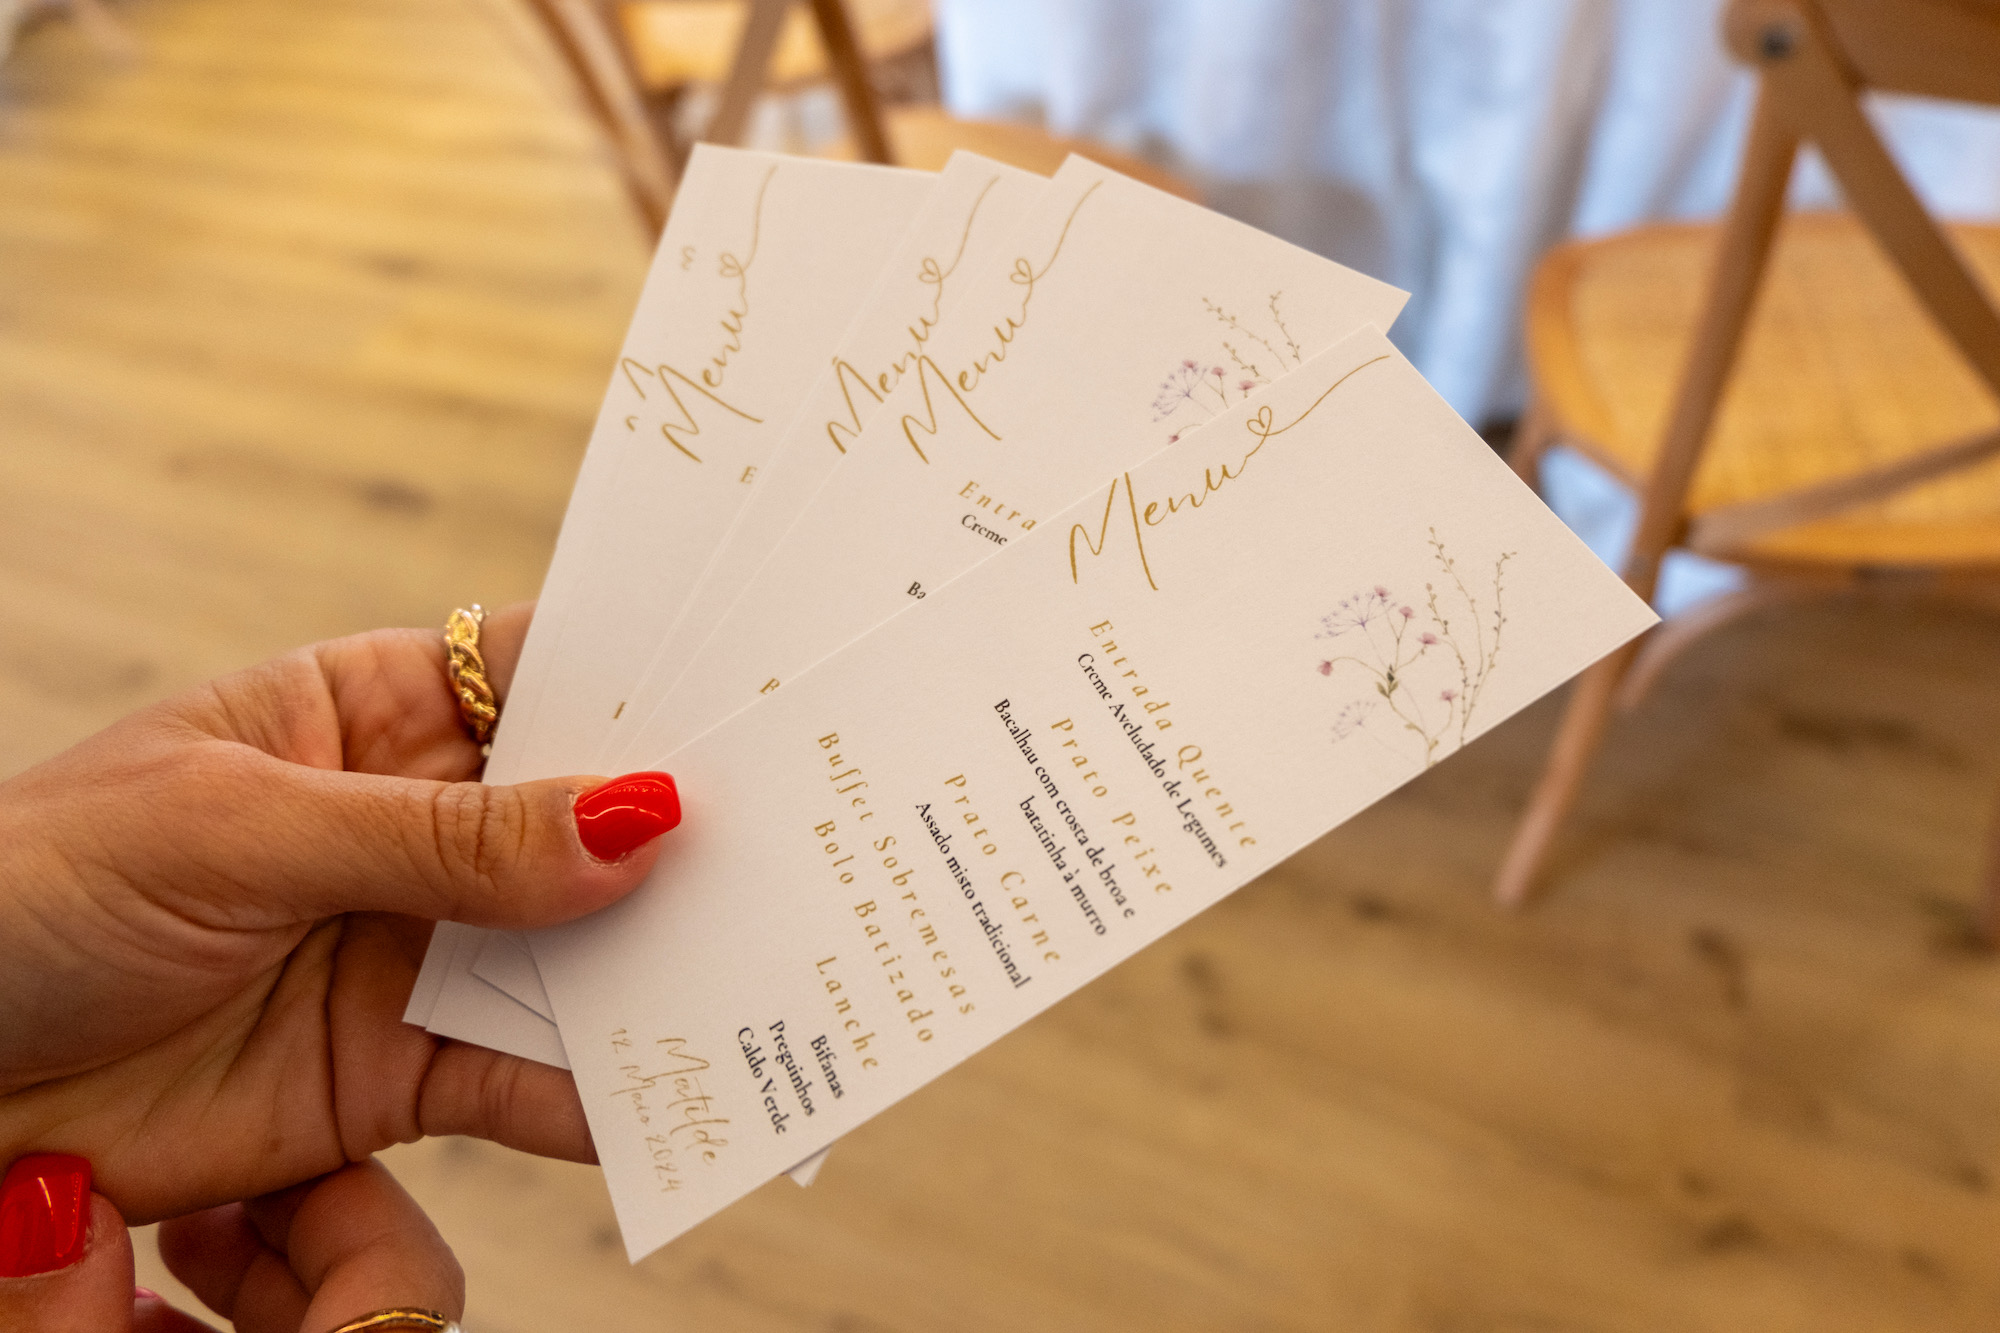 Menu
Menu
Menu
Entra
Creme
Ba
Menu
Entrada Quente
Creme Aveludado de Legumes
Prato Peixe
Bacalhau com crosta de broa e
batatinha à murro
Prato Carne
Assado misto tradicional
Buffet Sobremesas
Bolo Batizado
Lanche
Bifanas
Preguinhos
Caldo Verde
Matilde
12 Maio 2024